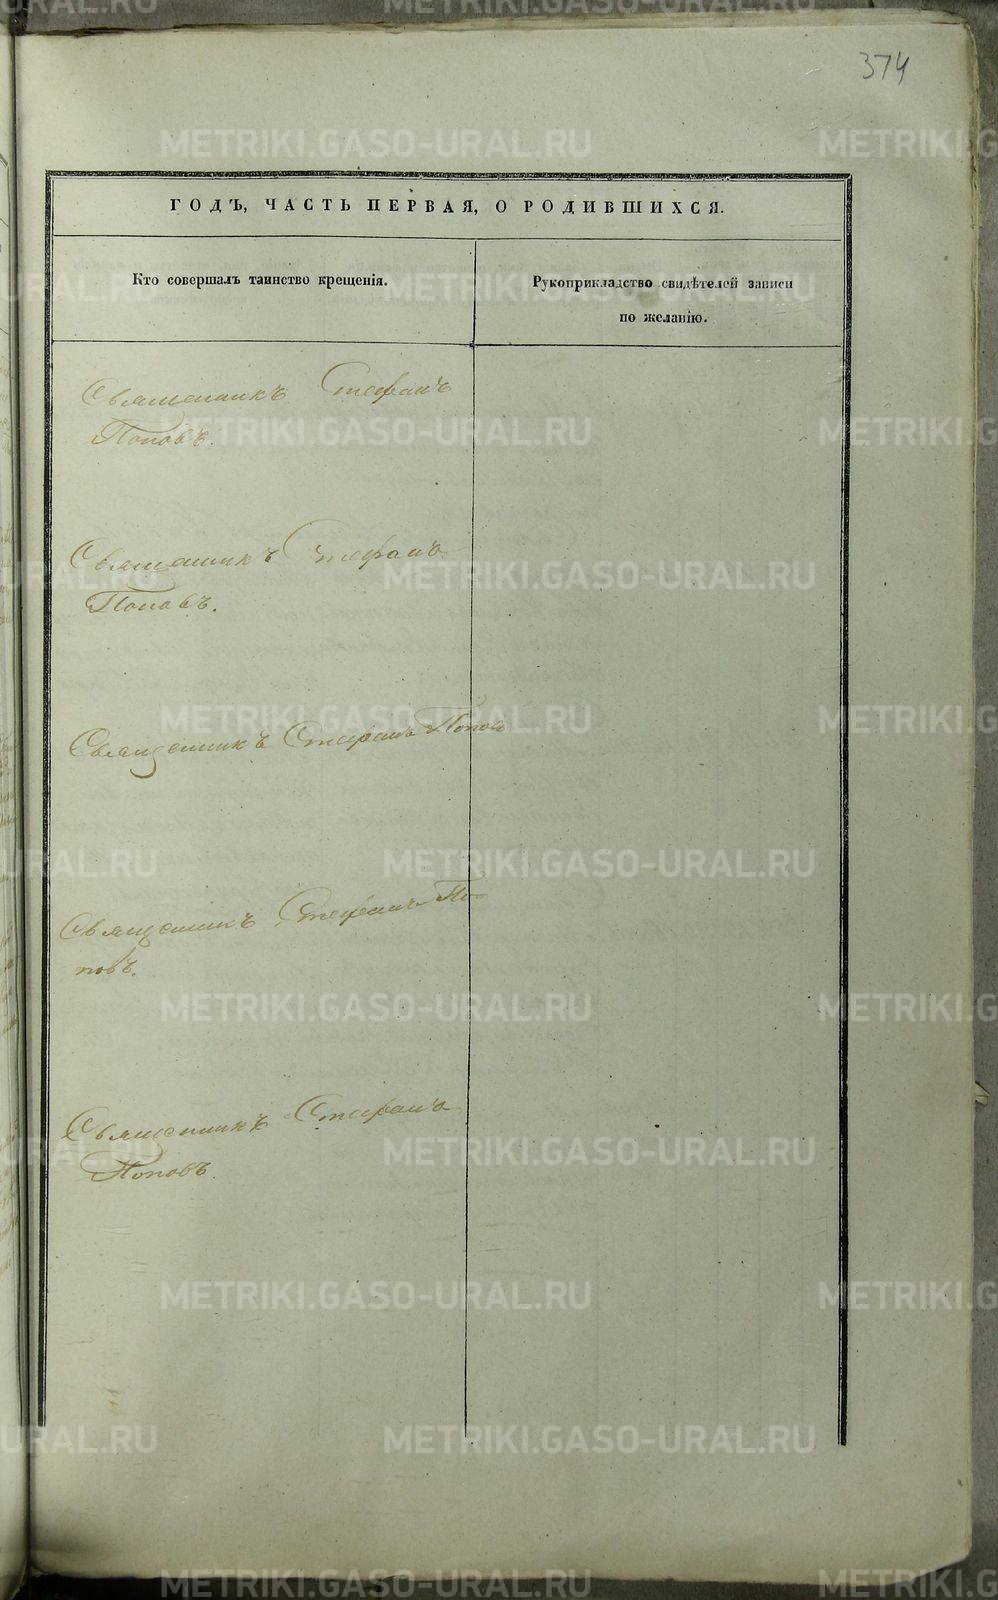 374
ГОДЪ, ЧАСТЬ ПЕРВАЯ, О РОДИВШИХСЯ.
Кто совершалъ таинство крещенія.
Рукоприкладство свидѣтелей записи
по желанію.
Священникъ Стефанъ
Поповъ.
Священникъ Стефанъ
Поповъ.
Священникъ Стефанъ Поповъ
Священникъ Стефанъ По-
повъ.
Священникъ Стефанъ
Поповъ.
METRIKI.GASO-URAL.RU